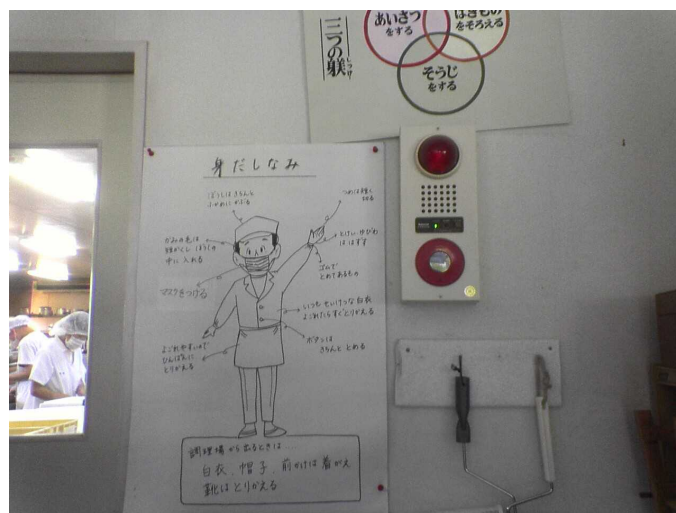 三つの躾
しつけ
あいさつ
をする
はきもの
をそろえる
そうじ
をする
身だしなみ
ぼうしはきちんと
ふかめにかぶる
つめは短く
切る
かみの毛は
短かくし ぼうしの
中に入れる
とけい ゆびわ
は はずす
ゴムで
とめてあるもの
マスクをつける
いつもせいけつな白衣
よごれたらすぐとりかえる
よごれやすいので
ひんぱんに
とりかえる
ボタンは
きちんととめる
調理場から出るときは…
白衣、帽子 前かけは着がえ
靴はとりかえる